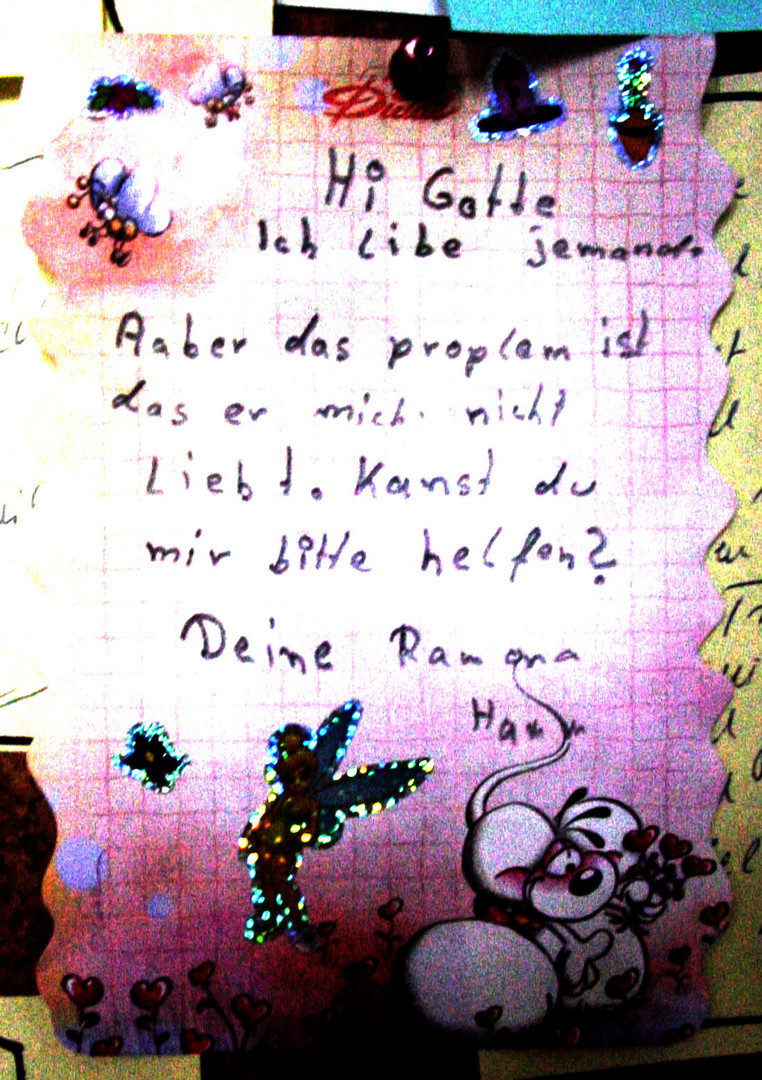 Hi Gotte
Ich libe jemand.
Aaber das proplem ist
das er mich nicht
Liebt. Kanst du
mir bitte helfen?
Deine Ramona